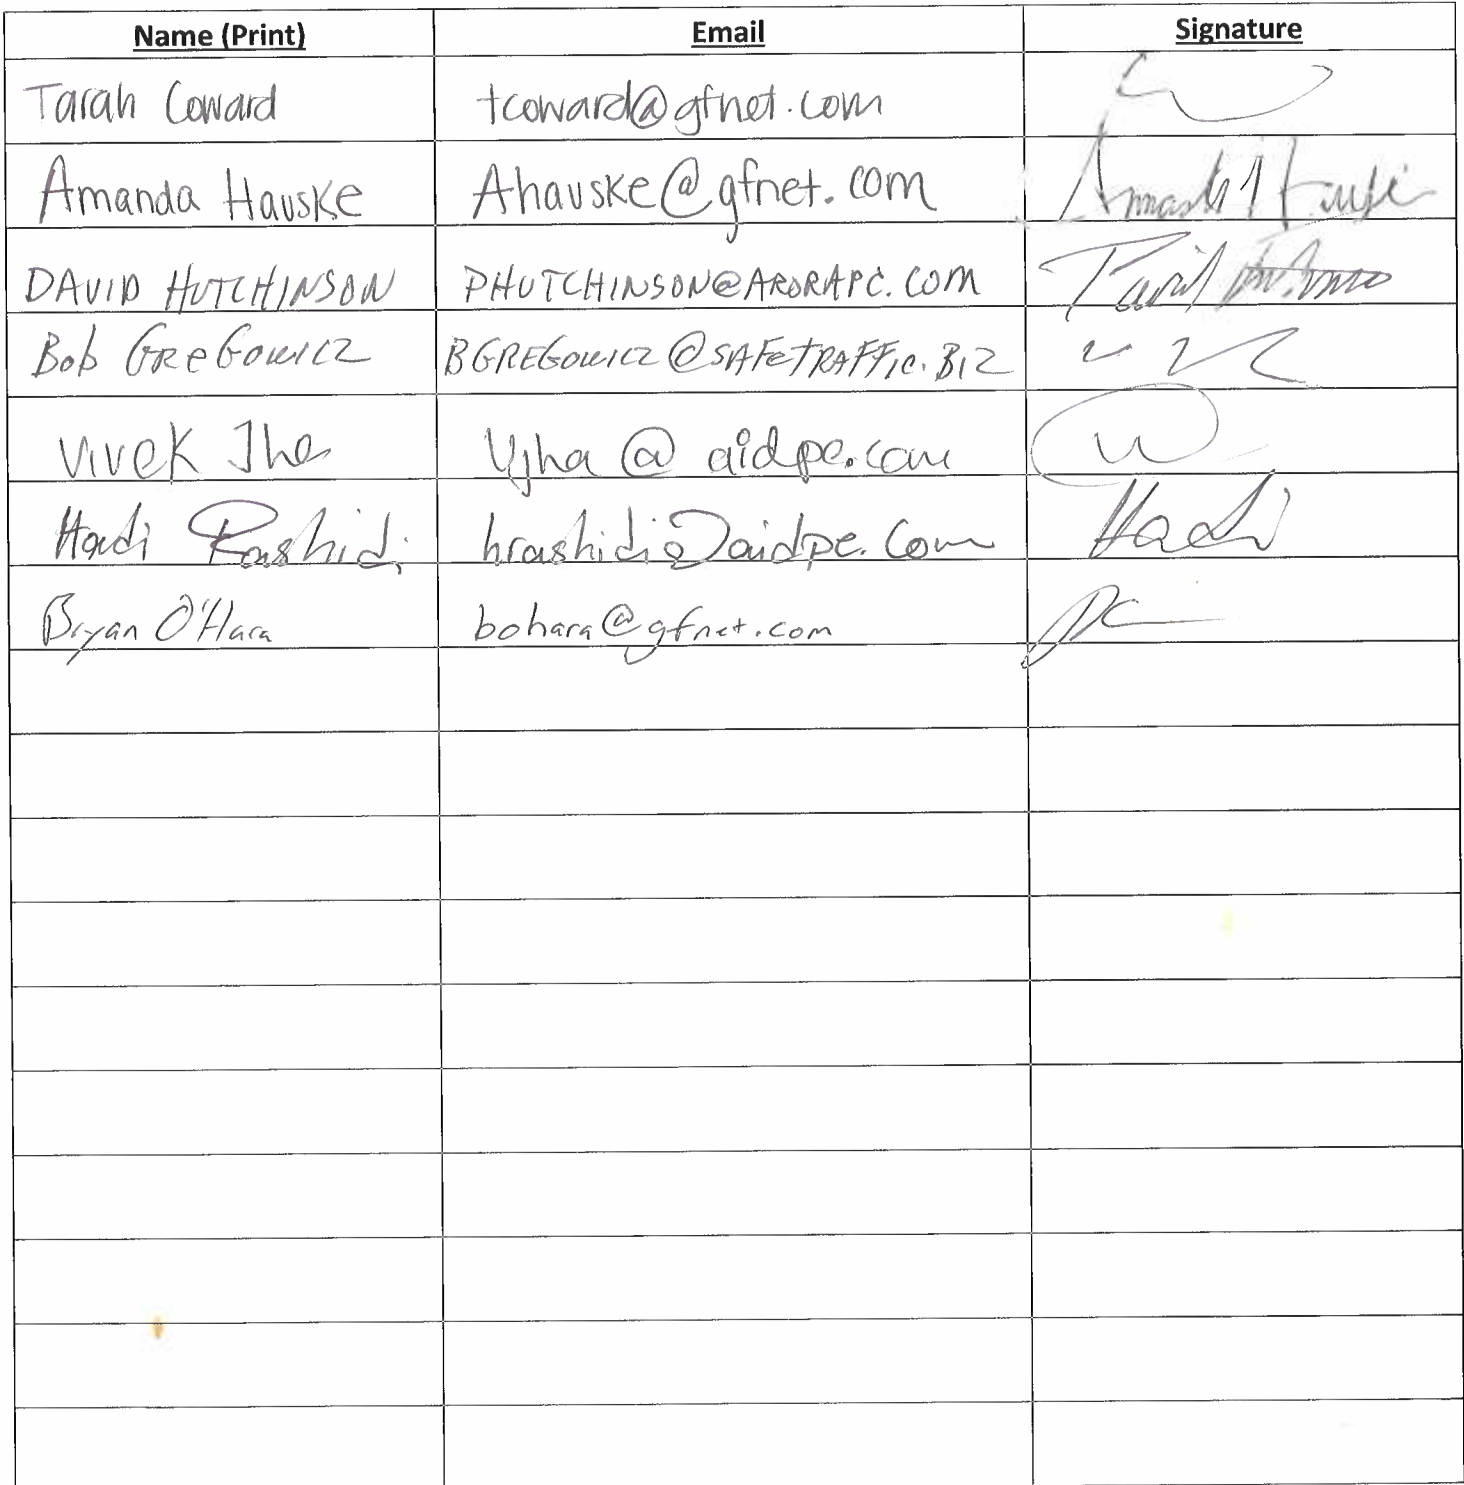 Name (Print) Email Signature
Tarah Coward tcoward@gfnet.com
Amanda Hauske Ahauske@gfnet.com
DAVID HUTCHINSON PHUTCHINSON@ARORAPC.COM
Bob GReGowicz BGREGowicz@SAFeTRAFFic.Biz
Vivek Jha Vjha@aidpe.com
Hadi Rashidi hrashidi@aidpe.com Hadi
Bryan O'Hara bohara@gfnet.com